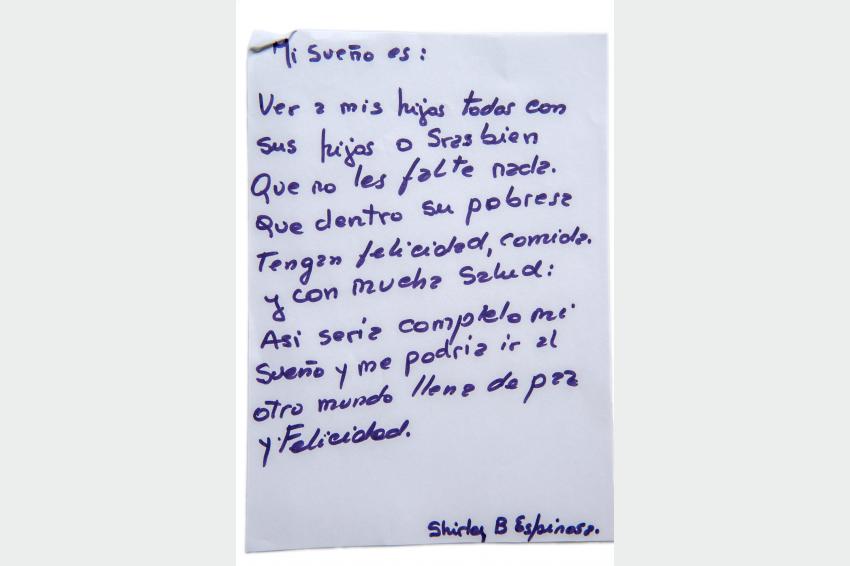 Mi sueño es:
Ver a mis hijas todas con
sus hijas o Sras bien
Que no les falte nada.
Que dentro su pobresa
Tengan felicidad, comida.
y con mucha Salud:
Asi seria completo mi
Sueño y me podria ir al
otro mundo llena de paz
y Felicidad.
Shirley B Espinosa.